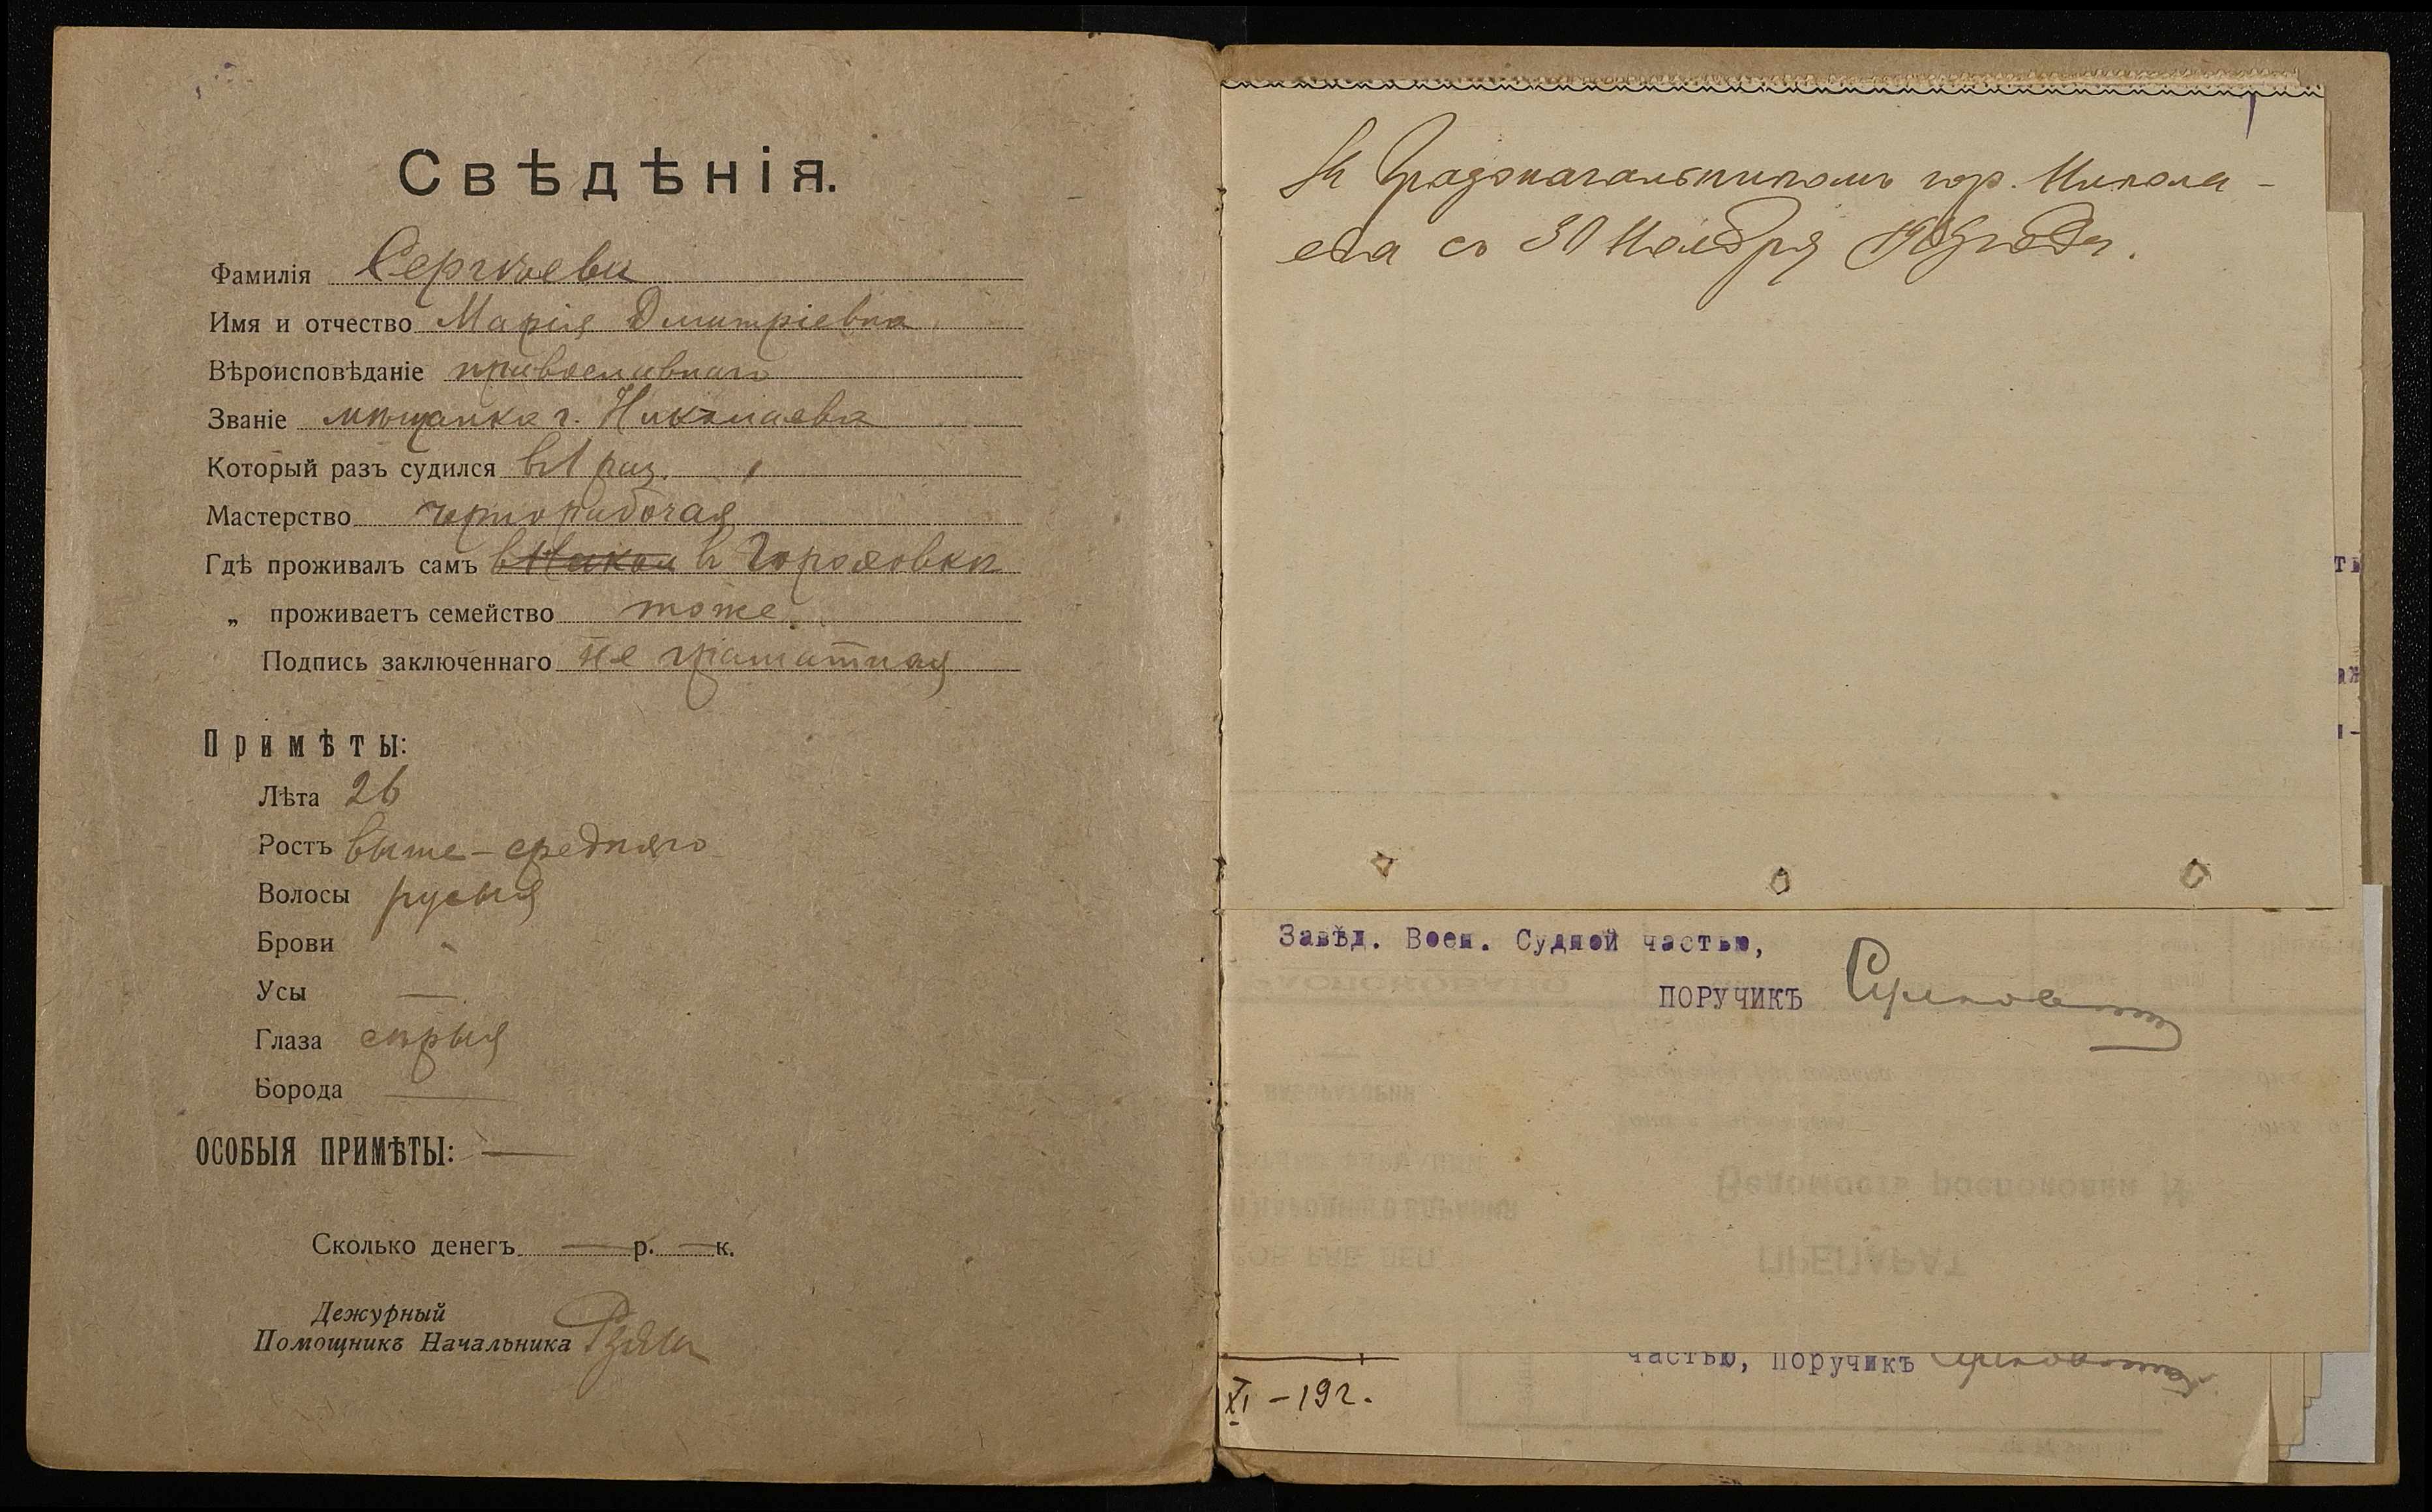 Свѣдѣнія.
Фамилія Сергѣева
Имя и отчество Марія Дмитріевна
Вѣроисповѣданіе православнаго
Званіе мѣщанка г. Николаева
Который разъ судился в 1 раз.
Мастерство чернорабочая
Гдѣ проживалъ самъ в Гороховкѣ
„ проживаетъ семейство тоже.
Подпись заключеннаго не граматная
Примѣты:
Лѣта 26
Ростъ выше-средняго
Волосы русыя
Брови
Усы —
Глаза сѣрыя
Борода —
ОСОБЫЯ ПРИМѢТЫ: —
Сколько денегъ — р. — к.
Дежурный
Помощникъ Начальника
Градоначальником гор. Никола-
ева съ 30 Ноября 1919 года.
Завѣд. Воен. Судной частью,
ПОРУЧИКЪ
частью, Поручикъ
XI – 19 г.